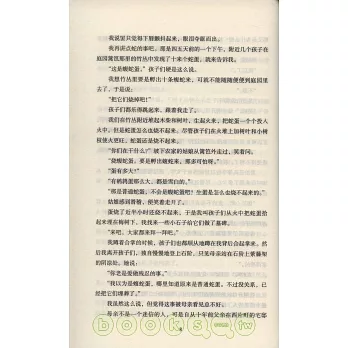 我说里只觉得下唇颤抖起来，眼泪夺眶而出。
我再讲点蛇的事吧。那是四五天前的一个下午，附近几个孩子在
庭园篱笆那形的竹丛中发现了十来个蛇蛋，就来告诉我。
“这是蝮蛇蛋。”孩子们硬是这么说。
我想竹丛里要是孵出十条蝮蛇来，可就不能随随便便到庭园里
去了，于是说：
“把它们烧掉吧！”
孩子们都乐得跳起来，跟着我走了。
我们在竹丛附近堆起树叶和树枝，生起火来，把蛇蛋一个个投入
火中，但是蛇蛋怎么也烧不起来。尽管孩子们在火堆上加树叶和小树
枝使火更旺，蛇蛋还是烧不起来。
“你们在干什么？”坡下农家的姑娘从篱笆外走过，笑着问。
“烧蝮蛇蛋，要是孵出蝮蛇来，那多可怕呀。”
“蛋有多大？”
“有鹌鹑蛋那么大，都是雪白的。”
“那是普通蛇蛋，不会是蝮蛇蛋吧？生蛋是怎么也烧不起来的。”
姑娘感到滑稽，便笑着走开了。
蛋烧了近半小时还烧不起来，于是我叫孩子们从火中把蛇蛋
拾来埋在梅树下，我找来一些小石子给它们做了墓标。
“来吧，大家都来拜一拜吧。”
我蹲着合掌的时候，孩子们也都顺从地蹲在我背后合起掌来。
然后离开孩子们，我独自慢慢地登上石阶，只见母亲站在石阶上紫藤架
的阴凉处，她说：
“你老是爱做残忍的事。”
“我以为是蝮蛇蛋，哪里知道原来是普通蛇蛋。不过没关系，已
经把它们埋葬了。”
我虽然这么说，但觉得这事被母亲看见总不好。
母亲不是一个迷信的人，可是自从十年前父亲在西片町的宅邸
books.com.tw